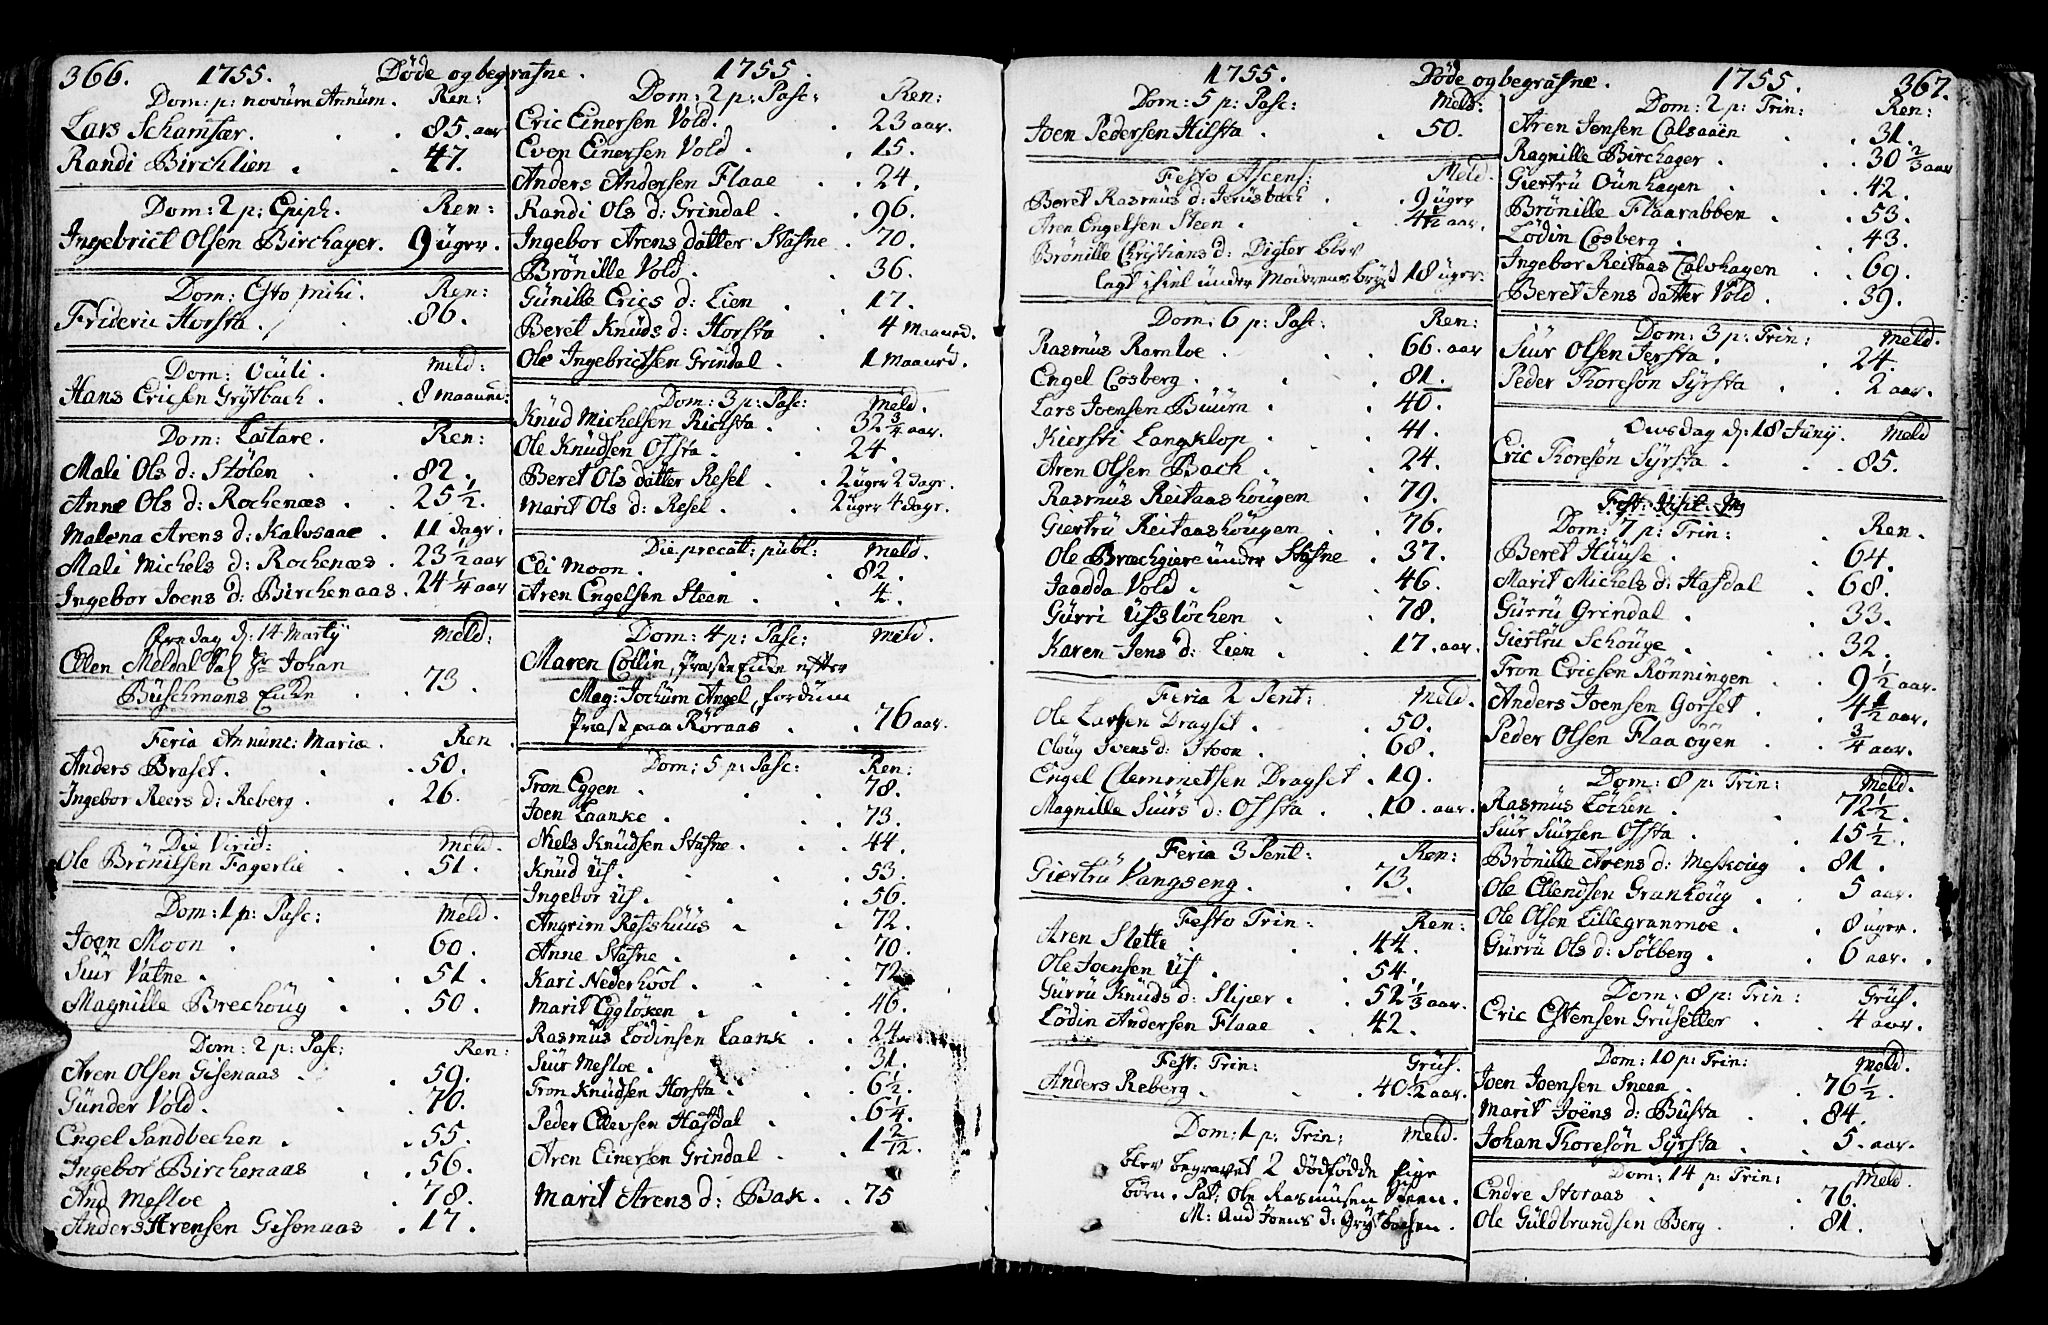 366. 1755. Døde og begrafne. 1755.
Dom: p: novum Annum. Ren:
Lars Schamfær. 85. aar
Randi Birchlien 47.
Dom: 2 p: Epiph. Ren:
Ingebrict Olsen Birchager. 9 uger.
Dom: Esto mihi. Ren:
Frideric Horsta. 86.
Dom: Oculi. Meld:
Hans Ericsen Grÿtbach. 8 maaned:
Dom: Lætare. Ren:
Mali Ols d: Stølen 82.
Anne Ols d: Rochenæs. 25 1/2.
Malena Arens d: Kalvsaae. 11 dagr.
Mali Michels d: Rochenæs. 23 1/2 aar
Ingebor Joens d: Birchenaas. 24 1/4 aar
d: 14 Martÿ Meld:
Ellen Meldal Sal Hr Johan
Büschmans Encke 73.
Feria Annunc: Mariæ. Ren
Anders Braset. 50.
Ingebor Reers d: Reberg. 26.
Die Virid: Meld.
Ole Brönilsen Fagerlie 51.
Dom: 1 p: Pasc: Meld.
Joen Moon 60.
Siür Vatne 51.
Magnille Brechoüg 50.
Dom: 2 p: Pasc: Ren:
Aren Olsen Gisenaas 59.
Günder Vold. 70.
Engel Sandbechen 55.
Ingebor Birchenaas 56.
And Mesloe 78.
Anders Arensen Gisenaas 17.
Dom: 2 p: Pasc: Ren:
Eric Einersen Vold. 23 aar.
Even Einersen Vold 15.
Anders Andersen Flaae 24.
Randi Ols d: Grindal 96.
Ingebor Arens datter Stafne 70.
Brönille Vold. 36.
Günille Erics d: Lien 17.
Beret Knüds d: Horsta 4 maaned.
Ole Ingebrictsen Grindal 1 maaned.
Dom: 3 p: Pasc: Meld.
Knüd Michelsen Richsta 32 3/4 aar.
Ole Knüdsen Offsta. 24.
Beret Ols datter Resel 2 uger 2 dagr.
Marit Ols d: Resel. 2 uger 4 dagr.
Die precat: publ: Meld.
Eli Moon 82.
Aren Engelsen Steen 4.
Dom: 4 p: Pasc: Meld.
Maren Collin, Præste Encke efter
Mag: Jochum Angel, fordum
Præst paa Røraas 76 aar.
Dom: 5 p: Pasc: Ren:
Tron Eggen 78.
Joen Laanke 73.
Niels Knüdsen Stafne 44.
Knüd Us. 53.
Ingebor Us. 56.
Angrim Rosshüüs 72.
Anne Stafne 70.
Kari Nederhool 72
Marit Eggløken 46.
Rasmus Lødinsen Laank 24.
Siür Mesloe 31.
Tron Knüdsen Horsta 6 1/2.
Peder Ellevsen Hafdal 6 1/4.
Aren Einersen Grindal 1 2/12.
Marit Arens d: Bak. 75
1755. Døde og begrafne. 1755. 367.
Dom: 5 p: Pasc: Meld:
Joen Pedersen Hilsta 50.
Festo Ascens: Meld.
Beret Rasmüs d: Jerüsbach 9 üger
Aren Engelsen Steen 4 1/2 aar.
Brönille Christians d: Digter blev
lagt ihiel under Moderens brÿst 18 uger.
Dom: 6 p: Pasc: Ren:
Rasmüs Ramloe 66. aar
Engel Cosberg 81.
Lars Joensen Büüm 40.
Kiersti Langklop 41.
Aren Olsen Bach 24.
Rasmüs Reitaashöugen 79.
Giertrü Reitaashöugen 76.
Ole Brechgiere under Stafne 37.
Jaadda Vold 46.
Gürri Ufsløchen 78.
Karen Jens d: Lien 17. aar
Feria 2 Pent: Meld.
Ole Larsen Dragset. 50.
Oloüg Joens d: Stoon 68.
Engel Clemmetsen Dragset 19.
Magnille Siürs d: Offsta 10. aar.
Feria 3 Pent: Ren:
Giertrü Vangseng. 73.
Festo Trin: Ren:
Aren Slette 44.
Ole Joensen Us 54.
Gürrü Knüds d: Sliper 52 1/3 aar.
Lødin Andersen Flaae 42.
Fest: Trin: Grüs.
Anders Reberg 40 1/2 aar.
Dom: 1 p: Trin: Meld.
blev begravet 2 dödfödde Pige
börn. Pat: Ole Rasmüsen Steen.
M: And Joens d: Grÿtbachen.
Dom: 2 p: Trin: Ren:
Aren Jensen Calsaaen 31.
Ragnille Birchager 30 2/3 aar
Giertrü Öünhagen 42.
Brönille Flaarabben 53.
Lødin Cosberg 43.
Ingebor Reitaas Calvhagen 69.
Beret Jens datter Vold 39.
Dom: 3 p: Trin: Meld.
Siür Olsen Jersta 24.
Peder Thoresøn Sÿrsta 2 aar.
Onsdag d: 18 Junÿ. Meld
Eric Thoresøn Sÿrsta 85.
Dom: 7 p: Trin: Ren.
Beret Hüüse 64.
Marit Michels d: Hafdal 68.
Gürrü Grindal 33.
Giertrü Schöüge 32.
Tron Ericsen Rønningen 9 1/2 aar.
Anders Joensen Gorset 4 1/2 aar.
Peder Olsen Flaaöÿen 3/4 aar.
Dom: 8 p: Trin: Meld.
Rasmüs Løchen 72 1/2.
Siür Siürsen Offsta 15 1/2.
Brönille Arens d: Meskoug 81.
Ole Ellendsen Grankoüg 5 aar.
Ole Olsen Lillegranmoe 8 uger.
Gürrü Ols d: Sölberg 6 aar.
Dom: 8 p: Trin: Grüs.
Eric Estensen Grüsetter 4 aar.
Dom: 10 p: Trin: Meld.
Joen Joensen Sneen 76 1/2.
Marit Joens d: Büsta 84.
Johan Thoresøn Sÿrsta 5. aar.
Dom: 14 p: Trin: Meld.
Endre Storaas 76.
Ole Güldbrandsen Berg 81.